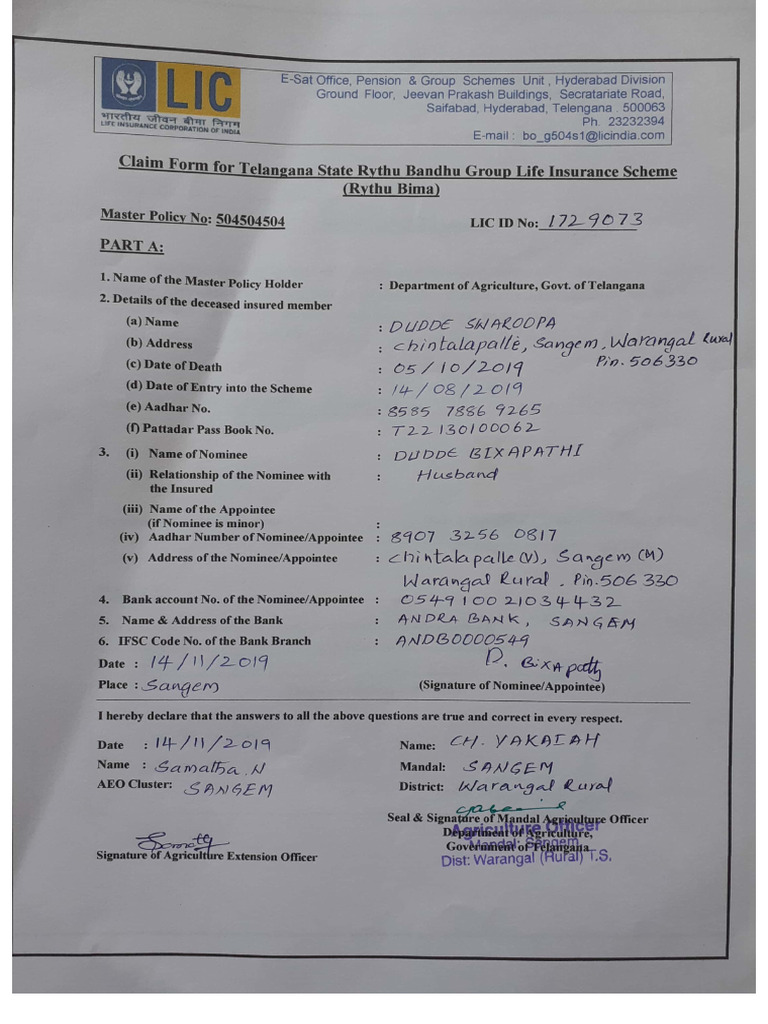 LIC
भारतीय जीवन बीमा निगम
LIFE INSURANCE CORPORATION OF INDIA
E-Sat Office, Pension & Group Schemes Unit , Hyderabad Division
Ground Floor, Jeevan Prakash Buildings, Secratariate Road,
Saifabad, Hyderabad, Telengana . 500063
Ph. 23232394
E-mail : bo_g504s1@licindia.com
Claim Form for Telangana State Rythu Bandhu Group Life Insurance Scheme
(Rythu Bima)
Master Policy No: 504504504 LIC ID No: 1729073
PART A:
1. Name of the Master Policy Holder : Department of Agriculture, Govt. of Telangana
2. Details of the deceased insured member
(a) Name : DUDDE SWAROOPA
(b) Address : Chintalapalle, Sangem, Warangal Rural
Pin. 506330
(c) Date of Death : 05/10/2019
(d) Date of Entry into the Scheme : 14/08/2019
(e) Aadhar No. : 8585 7886 9265
(f) Pattadar Pass Book No. : T22130100062
3. (i) Name of Nominee : DUDDE BIXAPATHI
(ii) Relationship of the Nominee with : Husband
the Insured
(iii) Name of the Appointee
(if Nominee is minor) :
(iv) Aadhar Number of Nominee/Appointee : 8907 3256 0817
(v) Address of the Nominee/Appointee : Chintalapalle (V), Sangem (M)
Warangal Rural . Pin. 506 330
4. Bank account No. of the Nominee/Appointee : 054910021034432
5. Name & Address of the Bank : ANDRA BANK, SANGEM
6. IFSC Code No. of the Bank Branch : ANDB0000549
Date : 14/11/2019 D. BixApathy
Place : Sangem (Signature of Nominee/Appointee)
I hereby declare that the answers to all the above questions are true and correct in every respect.
Date : 14/11/2019 Name: CH. YAKAIAH
Name : Samatha.N Mandal: SANGEM
AEO Cluster: SANGEM District: Warangal Rural
Seal & Signature of Mandal Agriculture Officer
Agriculture Officer
Department of Agriculture,
Mandal: Sangem
Government of Telangana
Dist: Warangal (Rural) T.S.
Signature of Agriculture Extension Officer